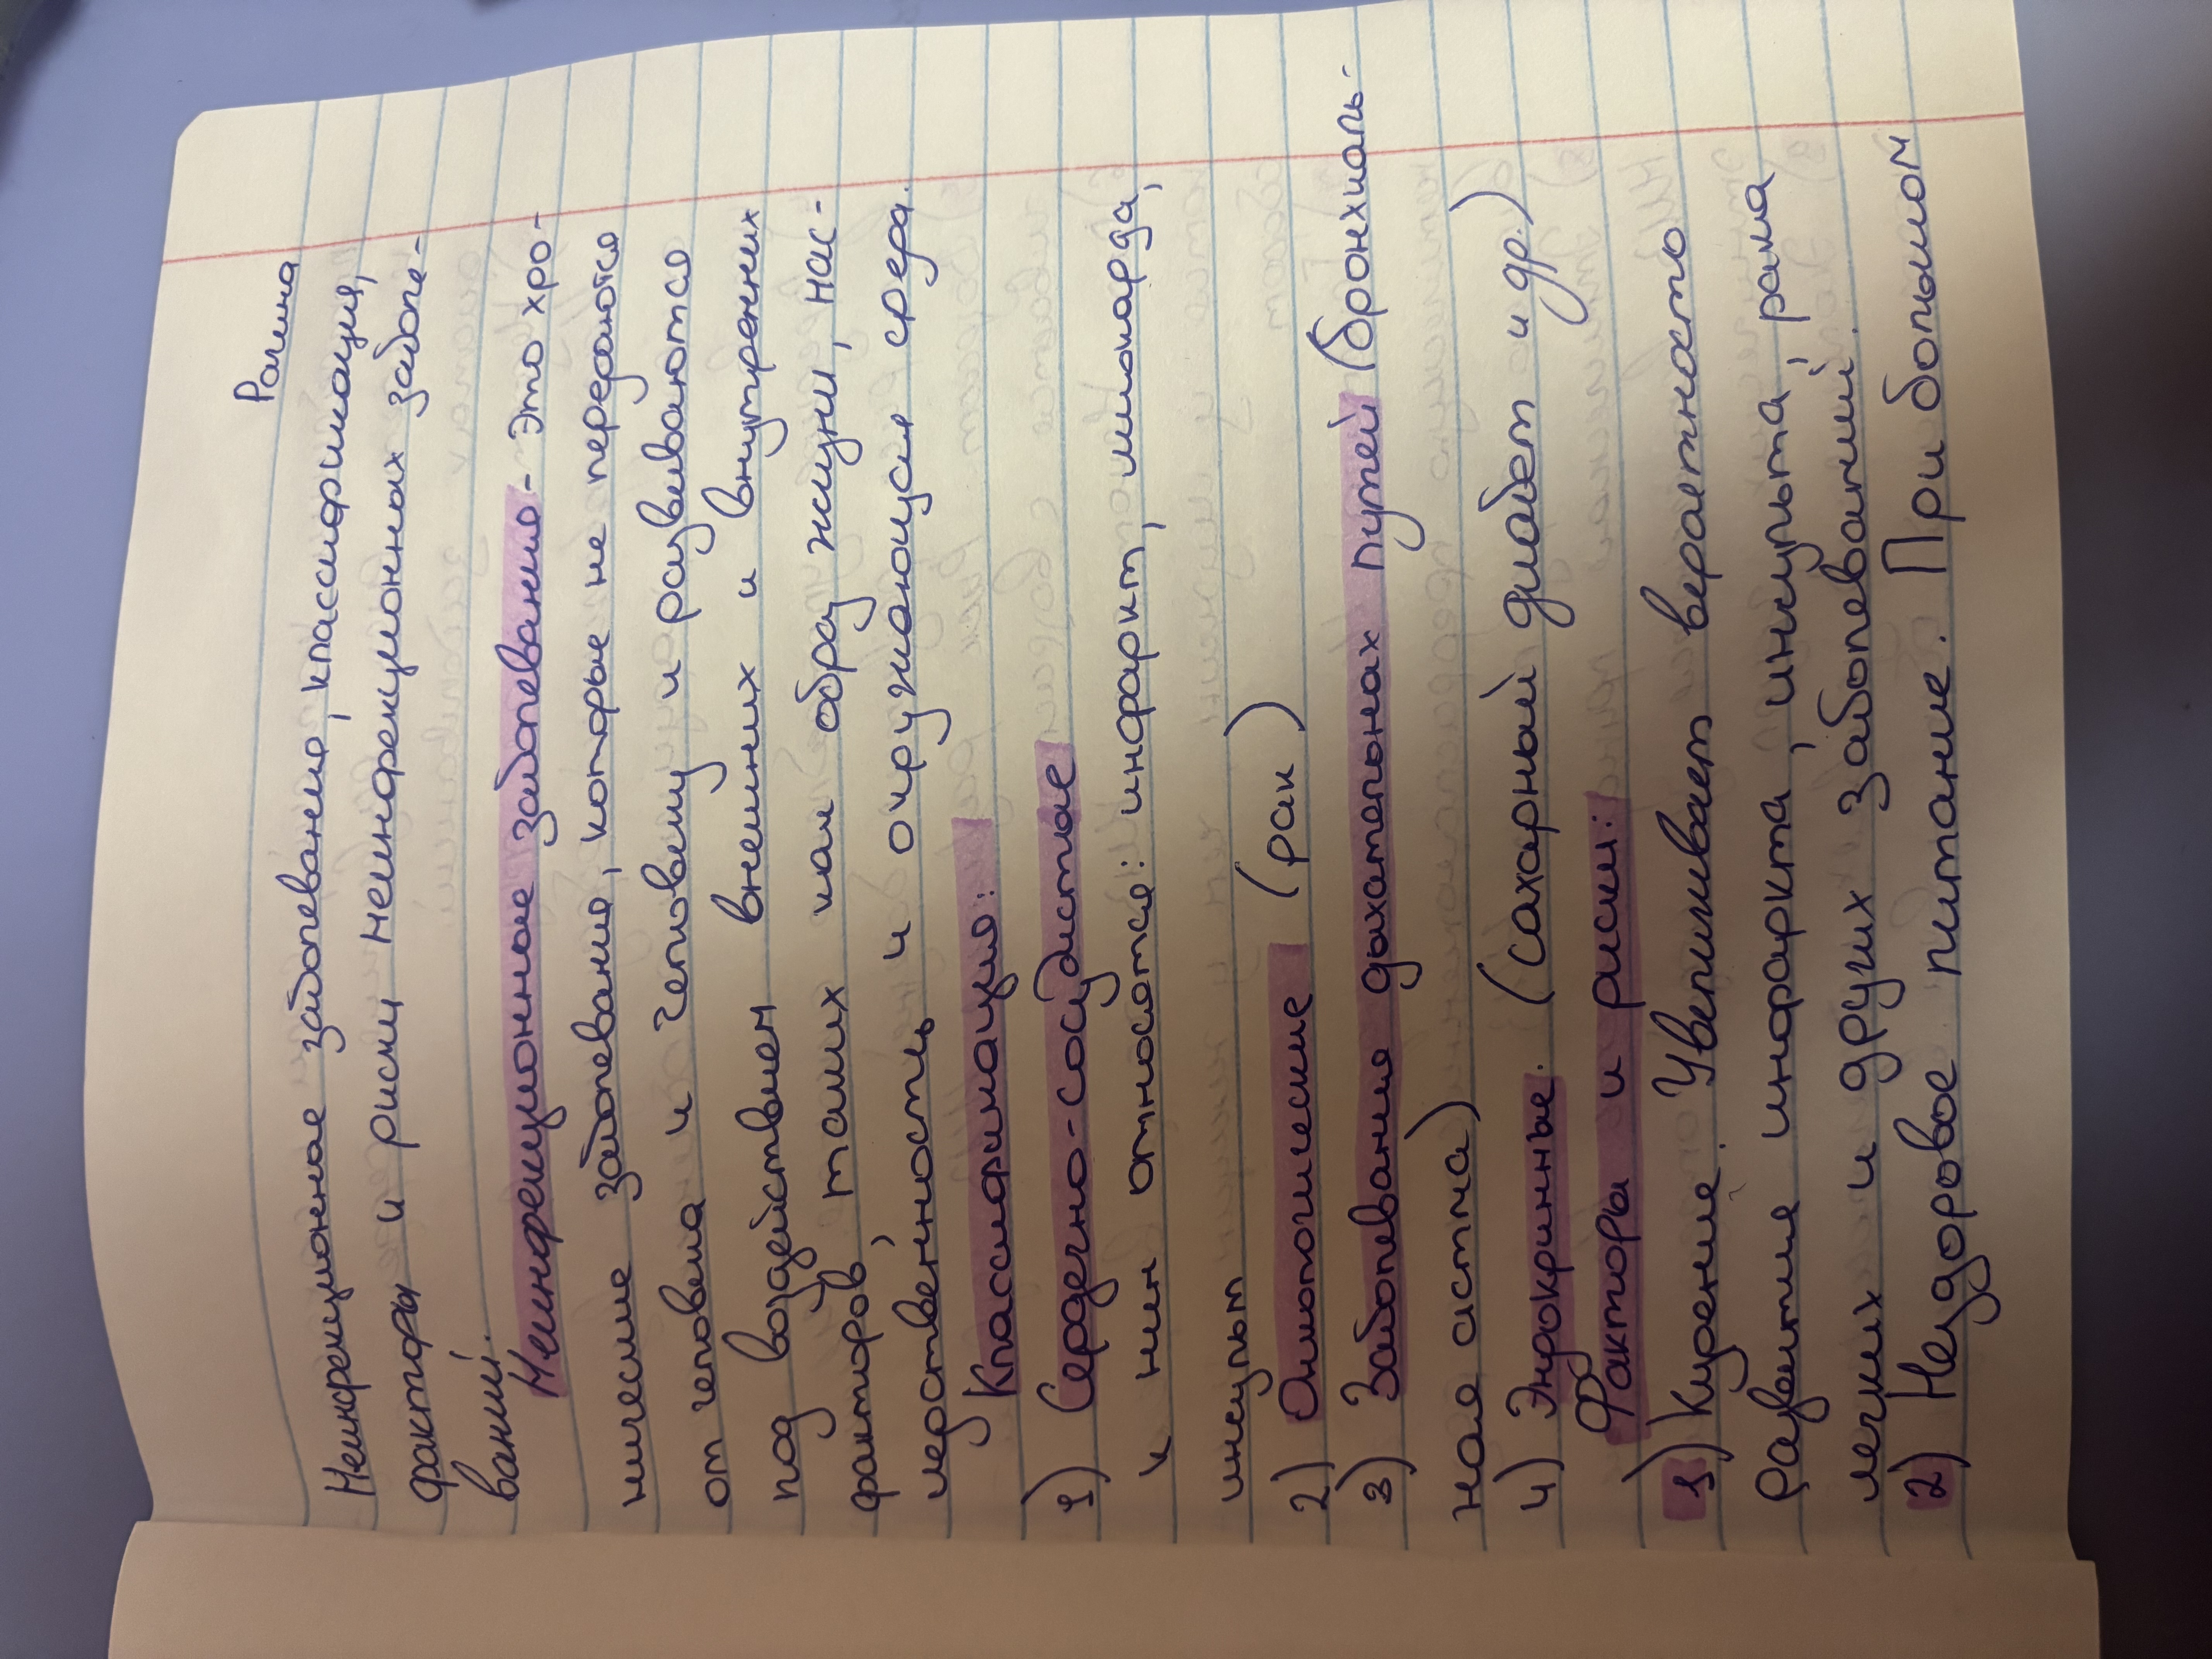 Рачина
Неинфекционное заболевание, классификация,
факторы и риски неинфекционных заболе-
ваний.
Неинфекционное заболевание - это хро-
нические заболевания, которые не передаются
от человека и человеку и развиваются
под воздействием внешних и внутренних
факторов, таких как образ жизни, нас-
ледственность и окружающая среда.
Классификация:
1) Сердечно-сосудистые
к ним относятся: инфаркт, миокарда,
инсульт
2) Онкологические (рак)
3) Заболевания дыхательных путей (бронхиаль-
ная астма)
4) Эндокринные. (сахарный диабет и др.)
Факторы и риски:
1) Курение. Увеличивает вераетность
развитие инфаркта, инсульта, рака
легких и других заболеваний.
2) Нездоровое питание. При большом